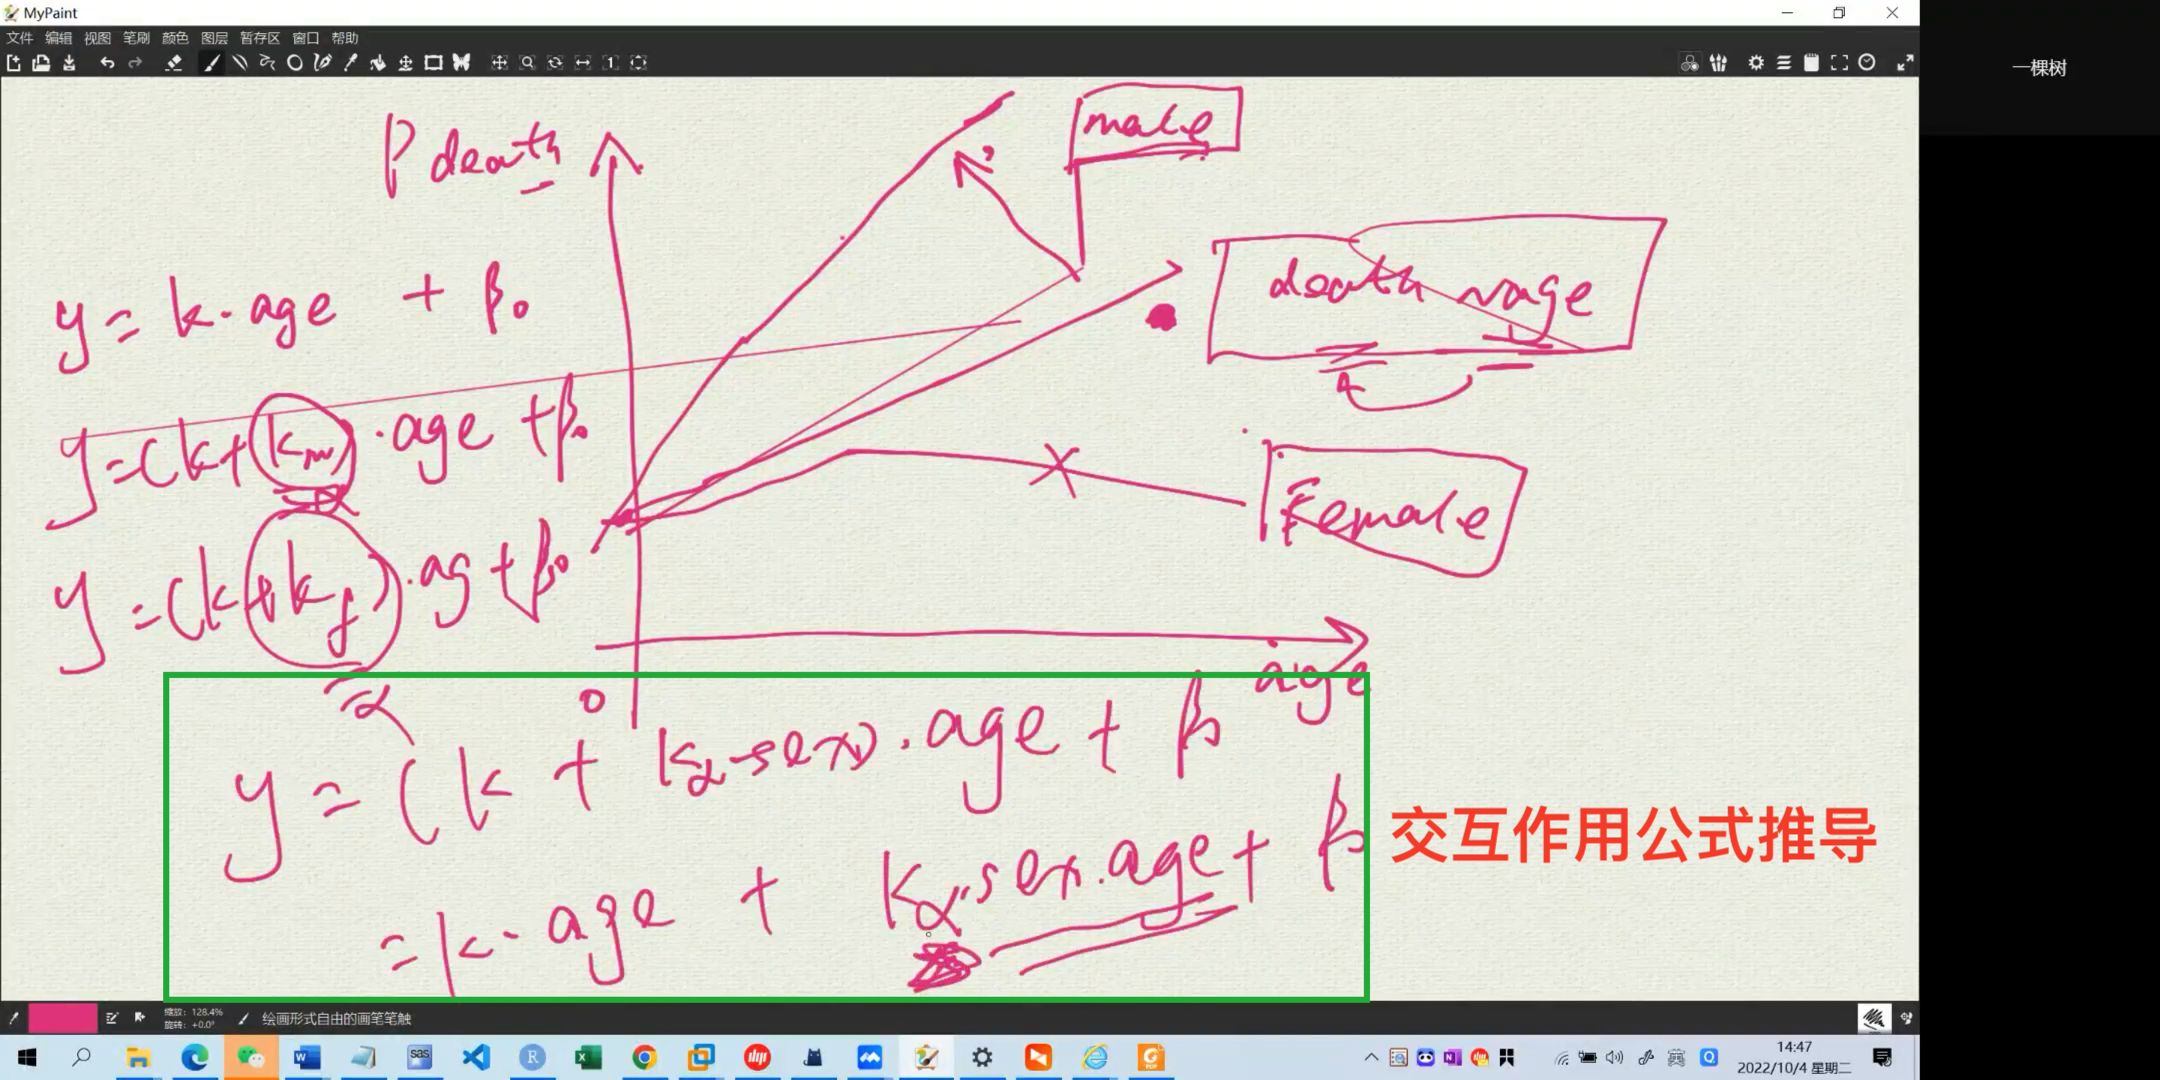 MyPaint
文件 编辑 视图 笔刷 颜色 图层 暂存区 窗口 帮助
一棵树
P death
male
y = k · age + β₀
death ~ age
y = (k + km) · age + β₀
Female
y = (k + kf) · ag + β₀
age
0
α
y = (k + kα·sex) · age + β
= k · age + kα·sex·age + β
交互作用公式推导
缩放: 128.4%
旋转: +0.0°
绘画形式自由的画笔笔触
14:47
2022/10/4 星期二